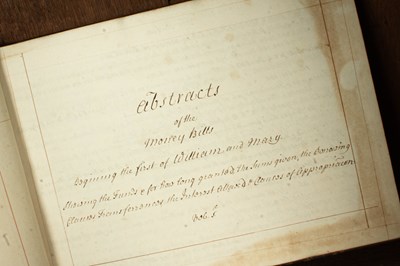 Abstracts
of the
Money Bills
begining the first of William and Mary
Shewing the Funds & for how long granted the Sums given, the borrowing
Clauses the Interest allow'd & Clauses of Appropriation
Vol: